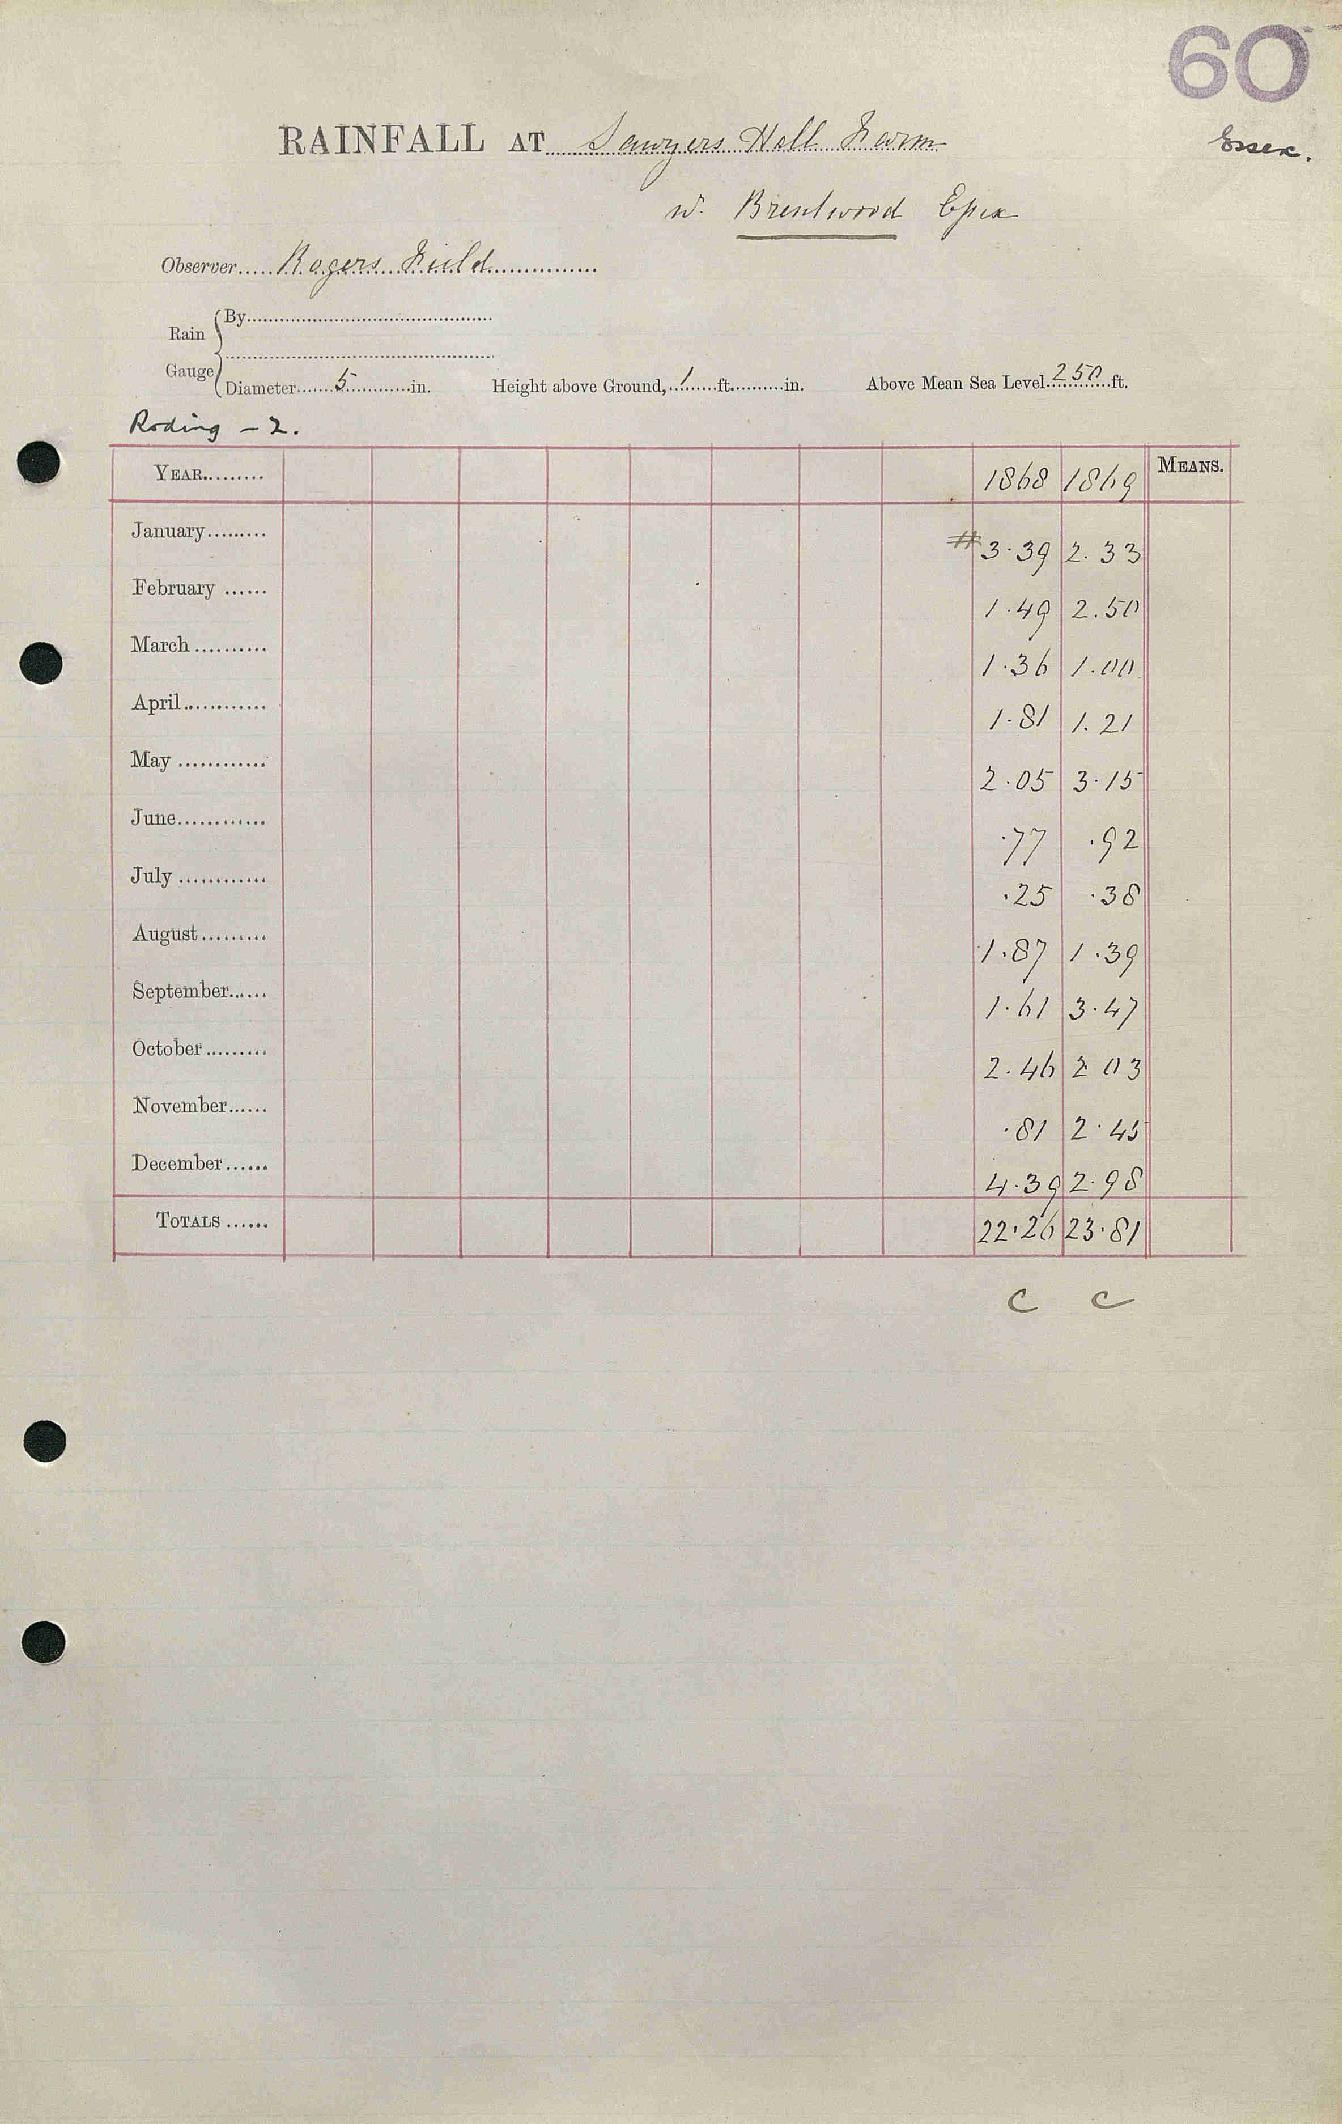 60
RAINFALL AT Sawyers Hall Farm
Essex.
nr. Brentwood Essex
Observer..... Rogers Field...............
Rain Gauge { By..............................................
Diameter....... 5 ............in. Height above Ground,... 1 ......ft..........in. Above Mean Sea Level. 250 ...ft.
Roding - 2.
YEAR......... 1868 1869 MEANS.
January......... # 3.39 2.33
February ...... 1.49 2.50
March.......... 1.36 1.00
April............ 1.81 1.21
May ............ 2.05 3.15
June............. .77 .92
July ............ .25 .38
August......... 1.87 1.39
September...... 1.61 3.47
October......... 2.46 2 03
November...... .81 2.45
December...... 4.39 2.98
TOTALS ...... 22.26 23.81
C C